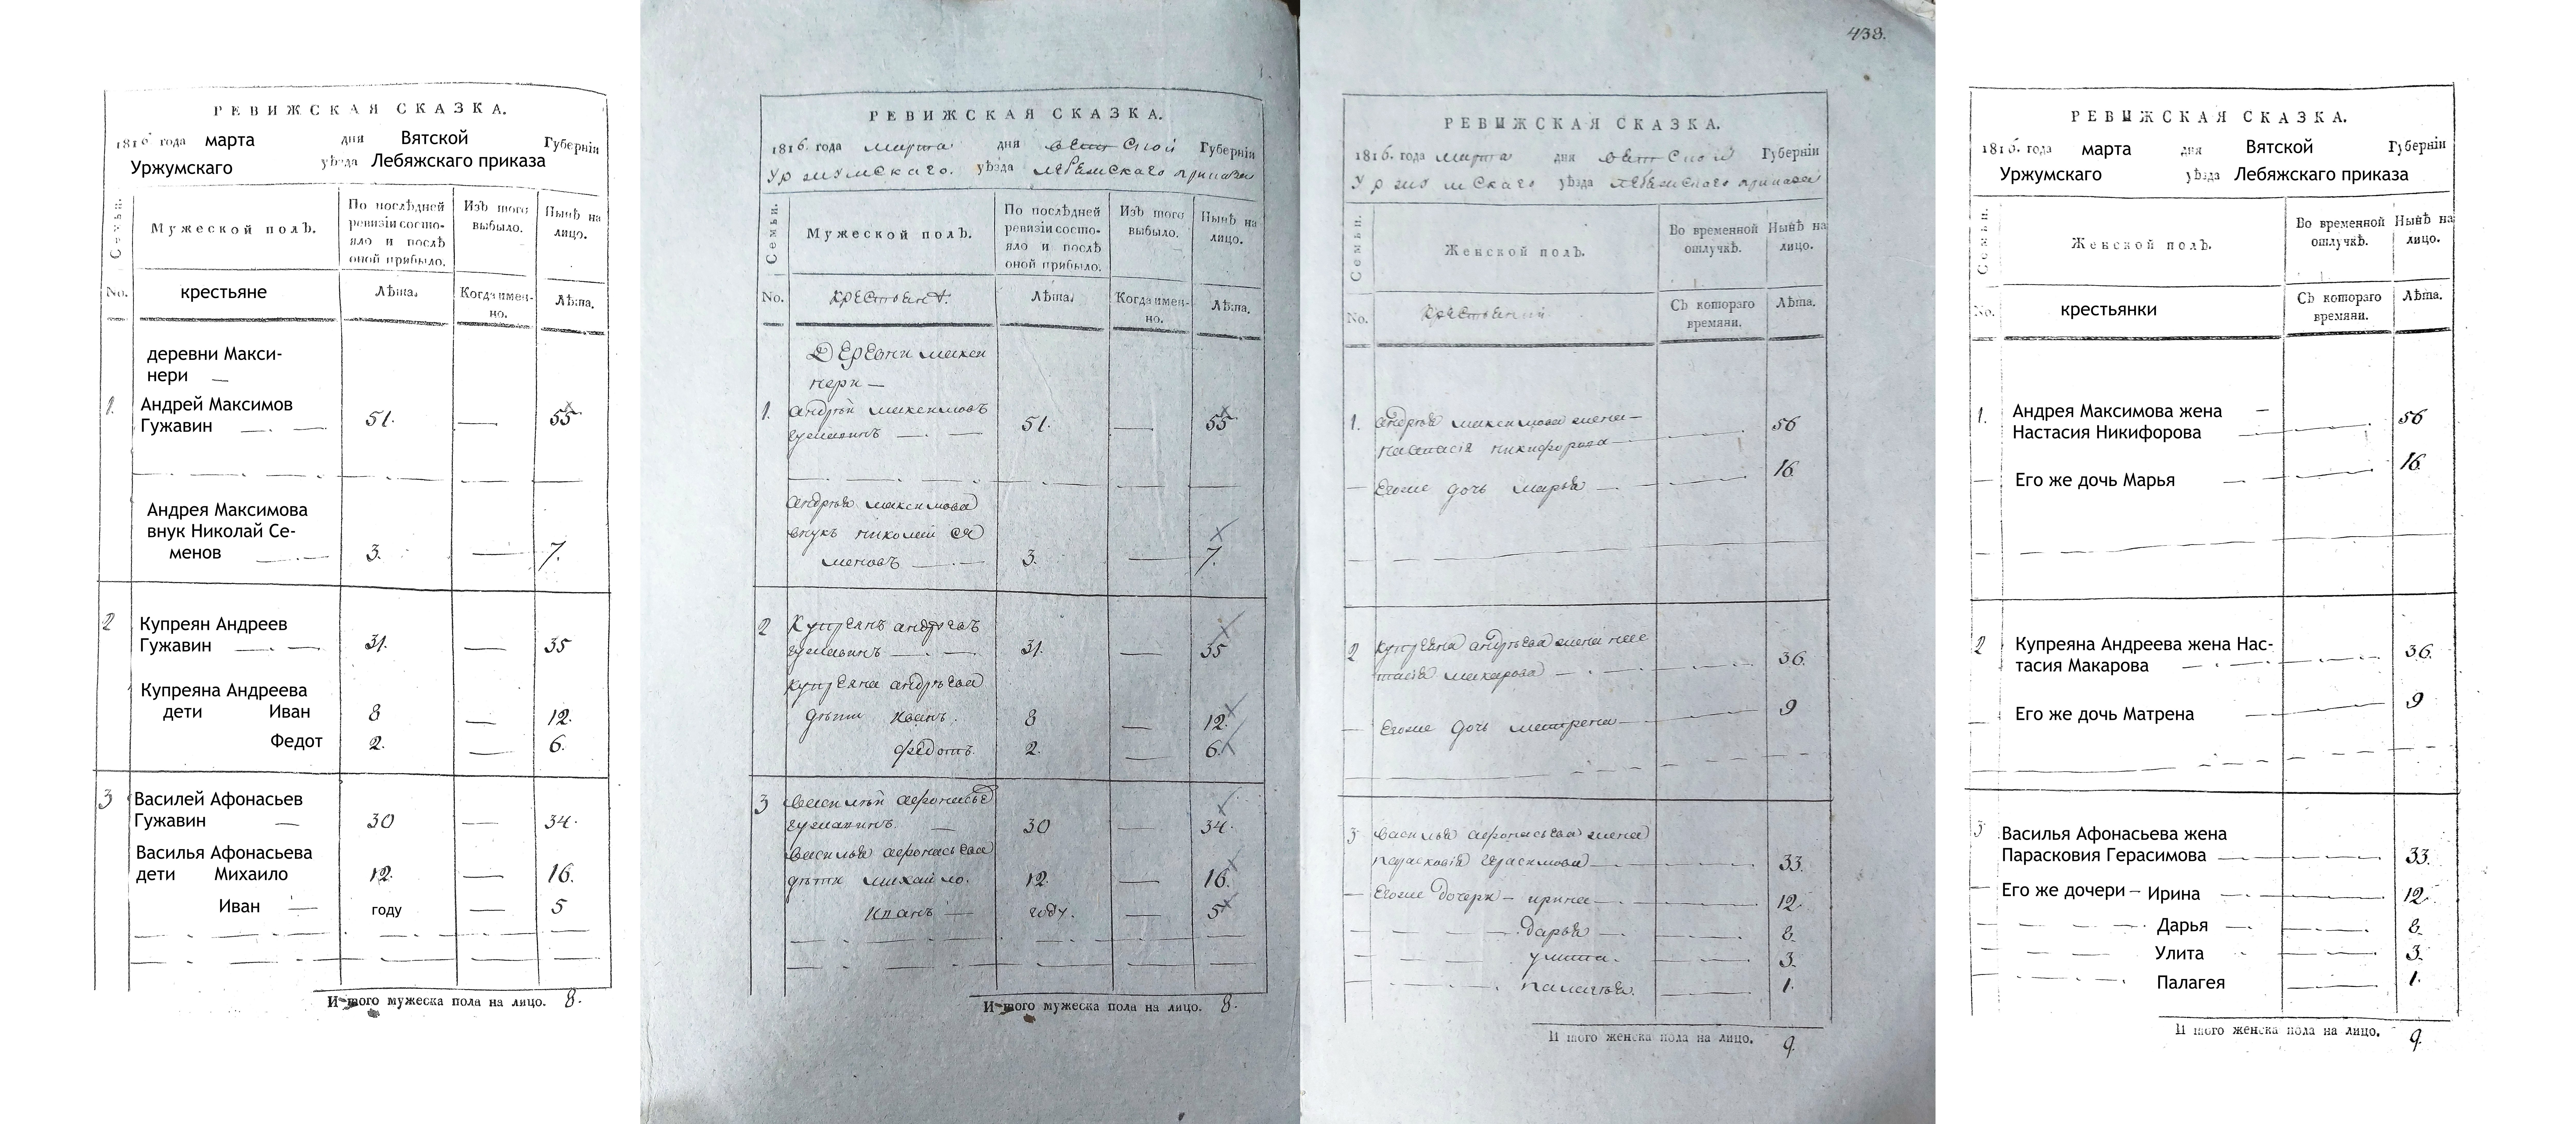 РЕВИЖСКАЯ СКАЗКА.
1816 года марта дня Вятской Губерніи
Уржумскаго уѣзда Лебяжскаго приказа
Семьи.
Мужеской полъ.
По послѣдней ревизіи состояло и послѣ оной прибыло.
Изъ того выбыло.
Нынѣ на лицо.
No. крестьяне Лѣта. Когда имен-но. Лѣта.
деревни Макси-
нери —
1. Андрей Максимов
Гужавин — 51. — 55
Андрея Максимова
внук Николай Се-
менов — 3. — 7.
2 Купреян Андреев
Гужавин — 31. — 35
Купреяна Андреева
дети Иван 8 — 12.
Федот 2. — 6.
3 Василей Афонасьев
Гужавин — 30 — 34.
Василья Афонасьева
дети Михаило 12. — 16.
Иван — году — 5
Итого мужеска пола на лицо. 8.
РЕВИЖСКАЯ СКАЗКА.
1816. года марта дня вятской Губерніи
Уржумскаго. уѣзда лебяжскаго приказа
Семьи.
Мужеской полъ.
По послѣдней ревизіи состояло и послѣ оной прибыло.
Изъ того выбыло.
Нынѣ на лицо.
No. крестьянѣ. Лѣта. Когда имен-но. Лѣта.
Деревни макси
нери —
1. андрѣй максимовъ
гужавинъ — 51. — 55.
андрѣя максимова
внукъ николай се
меновъ — 3. — 7.
2 Купреянъ андреевъ
гужавинъ — 31. — 35
купреяна андрѣева
дѣти иванъ. 8 — 12.
федотъ. 2. — 6.
3 василѣй афонасьев
гужавинъ. — 30 — 34.
василья афонасьева
дѣти михайло. 12. — 16.
иванъ — году. — 5
Итого мужеска пола на лицо. 8.
438.
РЕВИЖСКАЯ СКАЗКА.
1816. года марта дня вятской Губерніи
Уржумскаго уѣзда лебяжскаго приказа
Семьи.
Женской полъ.
Во временной отлучкѣ.
Нынѣ на лицо.
No. Съ котораго времяни. Лѣта.
1. андрѣя максимова жена — 56
настасія никифорова —
— Егоже дочь марья — 16.
2 купреяна андрѣева жена нас
тасія макарова — 36.
— Егоже дочь матрена — 9
3 василья афонасьева жена
парасковія герасимова — 33.
— Егоже дочери — ирина — 12.
дарья — 8.
улита. — 3.
палагѣя. — 1.
Итого женска пола на лицо. 9.
РЕВИЖСКАЯ СКАЗКА.
1816. года марта дня Вятской Губерніи
Уржумскаго уѣзда Лебяжскаго приказа
Семьи.
Женской полъ.
Во временной отлучкѣ.
Нынѣ на лицо.
No. крестьянки Съ котораго времяни. Лѣта.
1. Андрея Максимова жена —
Настасия Никифорова — 56
— Его же дочь Марья — 16.
2 Купреяна Андреева жена Нас-
тасия Макарова — 36.
— Его же дочь Матрена — 9
3 Василья Афонасьева жена
Парасковия Герасимова — 33.
— Его же дочери — Ирина — 12.
Дарья — 8.
Улита — 3.
Палагея — 1.
Итого женска пола на лицо. 9.